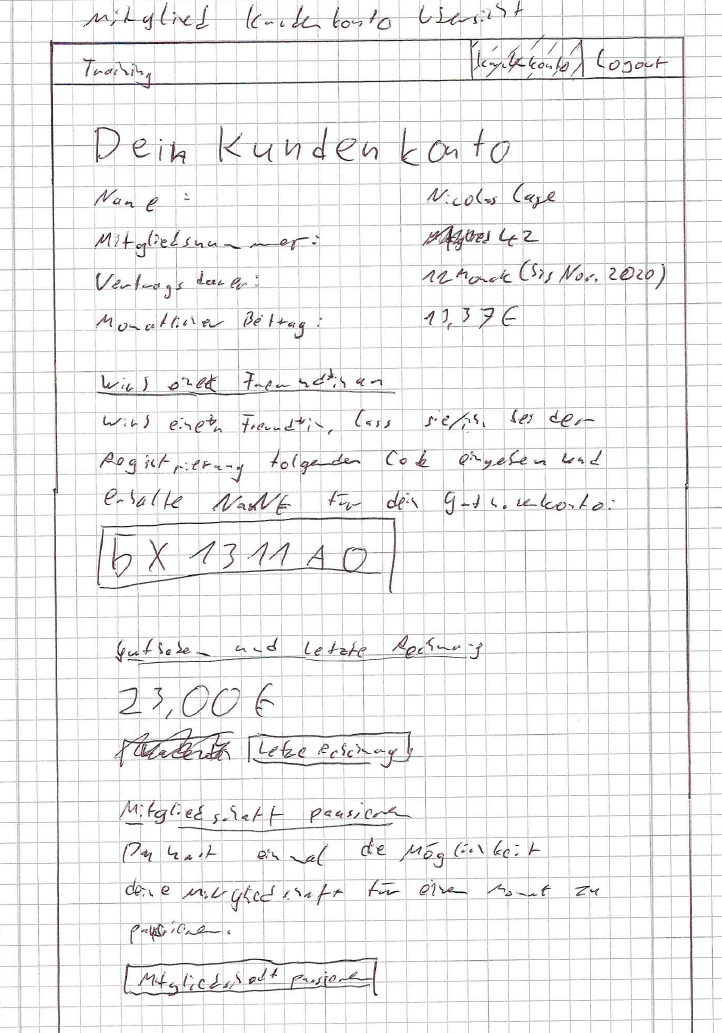 Mitglied Kundenkonto Übersicht
Training Kundenkonto Logout
Dein Kundenkonto
Name : Nicolas Cage
Mitgliedsnummer: 42
Vertragsdauer: 12 Monate (bis Nov. 2020)
Monatlicher Beitrag: 13,37€
Wirb eine*n Freund*in, lass sie/ihn bei der
Registrierung folgenden Code eingeben und
erhalte für dein Guthabenkonto:
bX1311AO
Guthaben und letzte Rechnung
23,00€
Letzte Rechnung
Mitgliedschaft pausieren
Du hast einmal die Möglichkeit
deine Mitgliedschaft für einen Monat zu
pausieren.
Mitgliedschaft pausieren